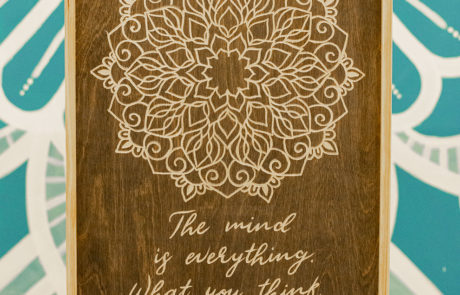 The mind
is everything.
What you think